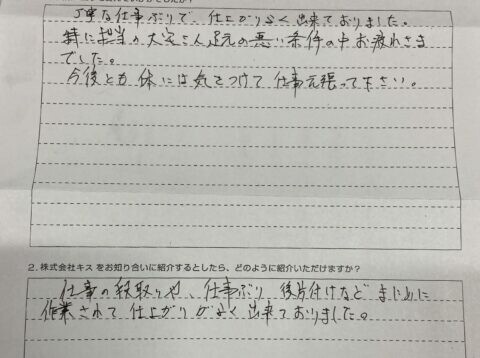 丁寧な仕事ぶりで、仕上がりよく出来ておりました。
特に担当の大宮さん足元の悪い条件の中お疲れさま
でした。
今後とも体には気をつけて仕事元張って下さい。
2. 株式会社キス をお知り合いに紹介するとしたら、どのように紹介いただけますか?
仕事の段取りや、仕事ぶり、後片付けなどまじめに
作業されて仕上がりがよく出来ておりました。